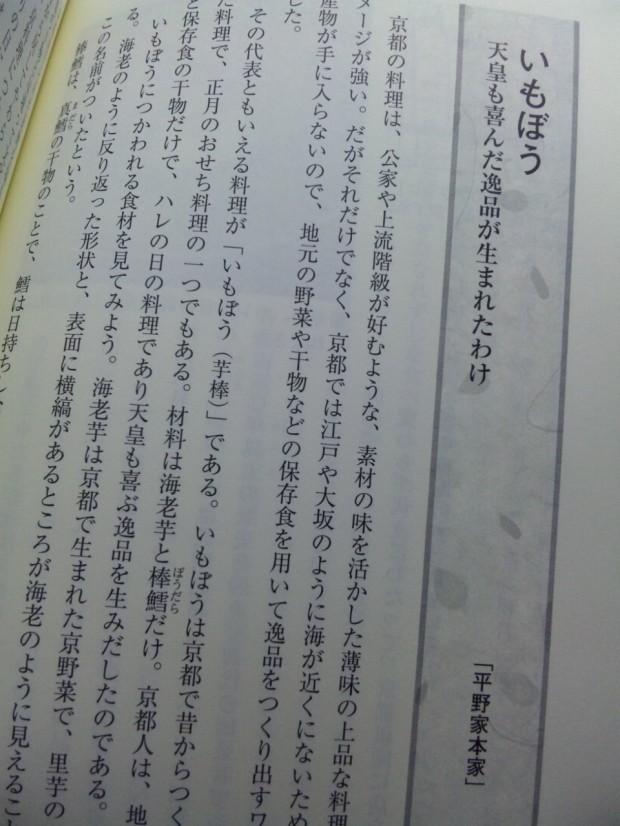 いもぼう
天皇も喜んだ逸品が生まれたわけ
「平野家本家」
京都の料理は、公家や上流階級が好むような、素材の味を活かした薄味の上品な料理
メージが強い。だがそれだけでなく、京都では江戸や大坂のように海が近くにないため
産物が手に入らないので、地元の野菜や干物などの保存食を用いて逸品をつくり出すワ
した。
その代表ともいえる料理が「いもぼう（芋棒）」である。いもぼうは京都で昔からつく
た料理で、正月のおせち料理の一つでもある。材料は海老芋と棒鱈だけ。京都人は、地
と保存食の干物だけで、ハレの日の料理であり天皇も喜ぶ逸品を生みだしたのである。
いもぼうにつかわれる食材を見てみよう。海老芋は京都で生まれた京野菜で、里芋の
る。海老のように反り返った形状と、表面に横縞があるところが海老のように見えるこ
この名前がついたという。
棒鱈は、真鱈の干物のことで、鱈は日持ち